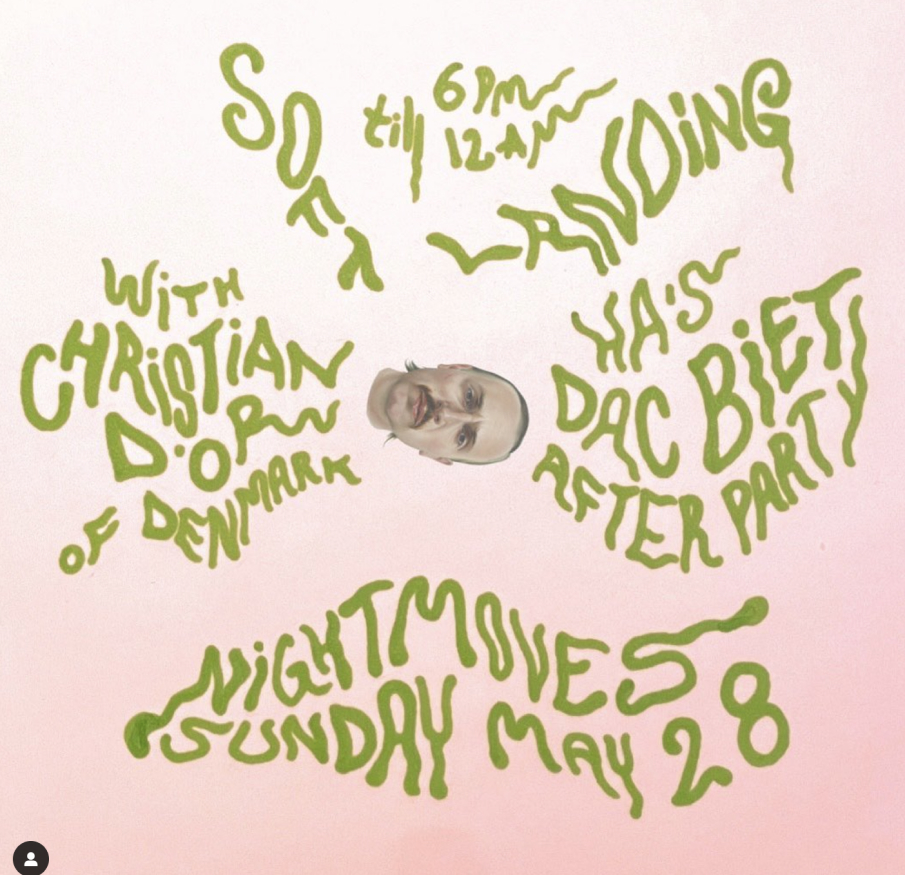 SOFA LANDiNG
6PM
till 12AM
WiTH
CHRiSTiAN
D'OR
OF DENMARK
HA'S
DAC BiET
AFTER PARTY
NiGHTMOVES
SUNDAY MAY 28